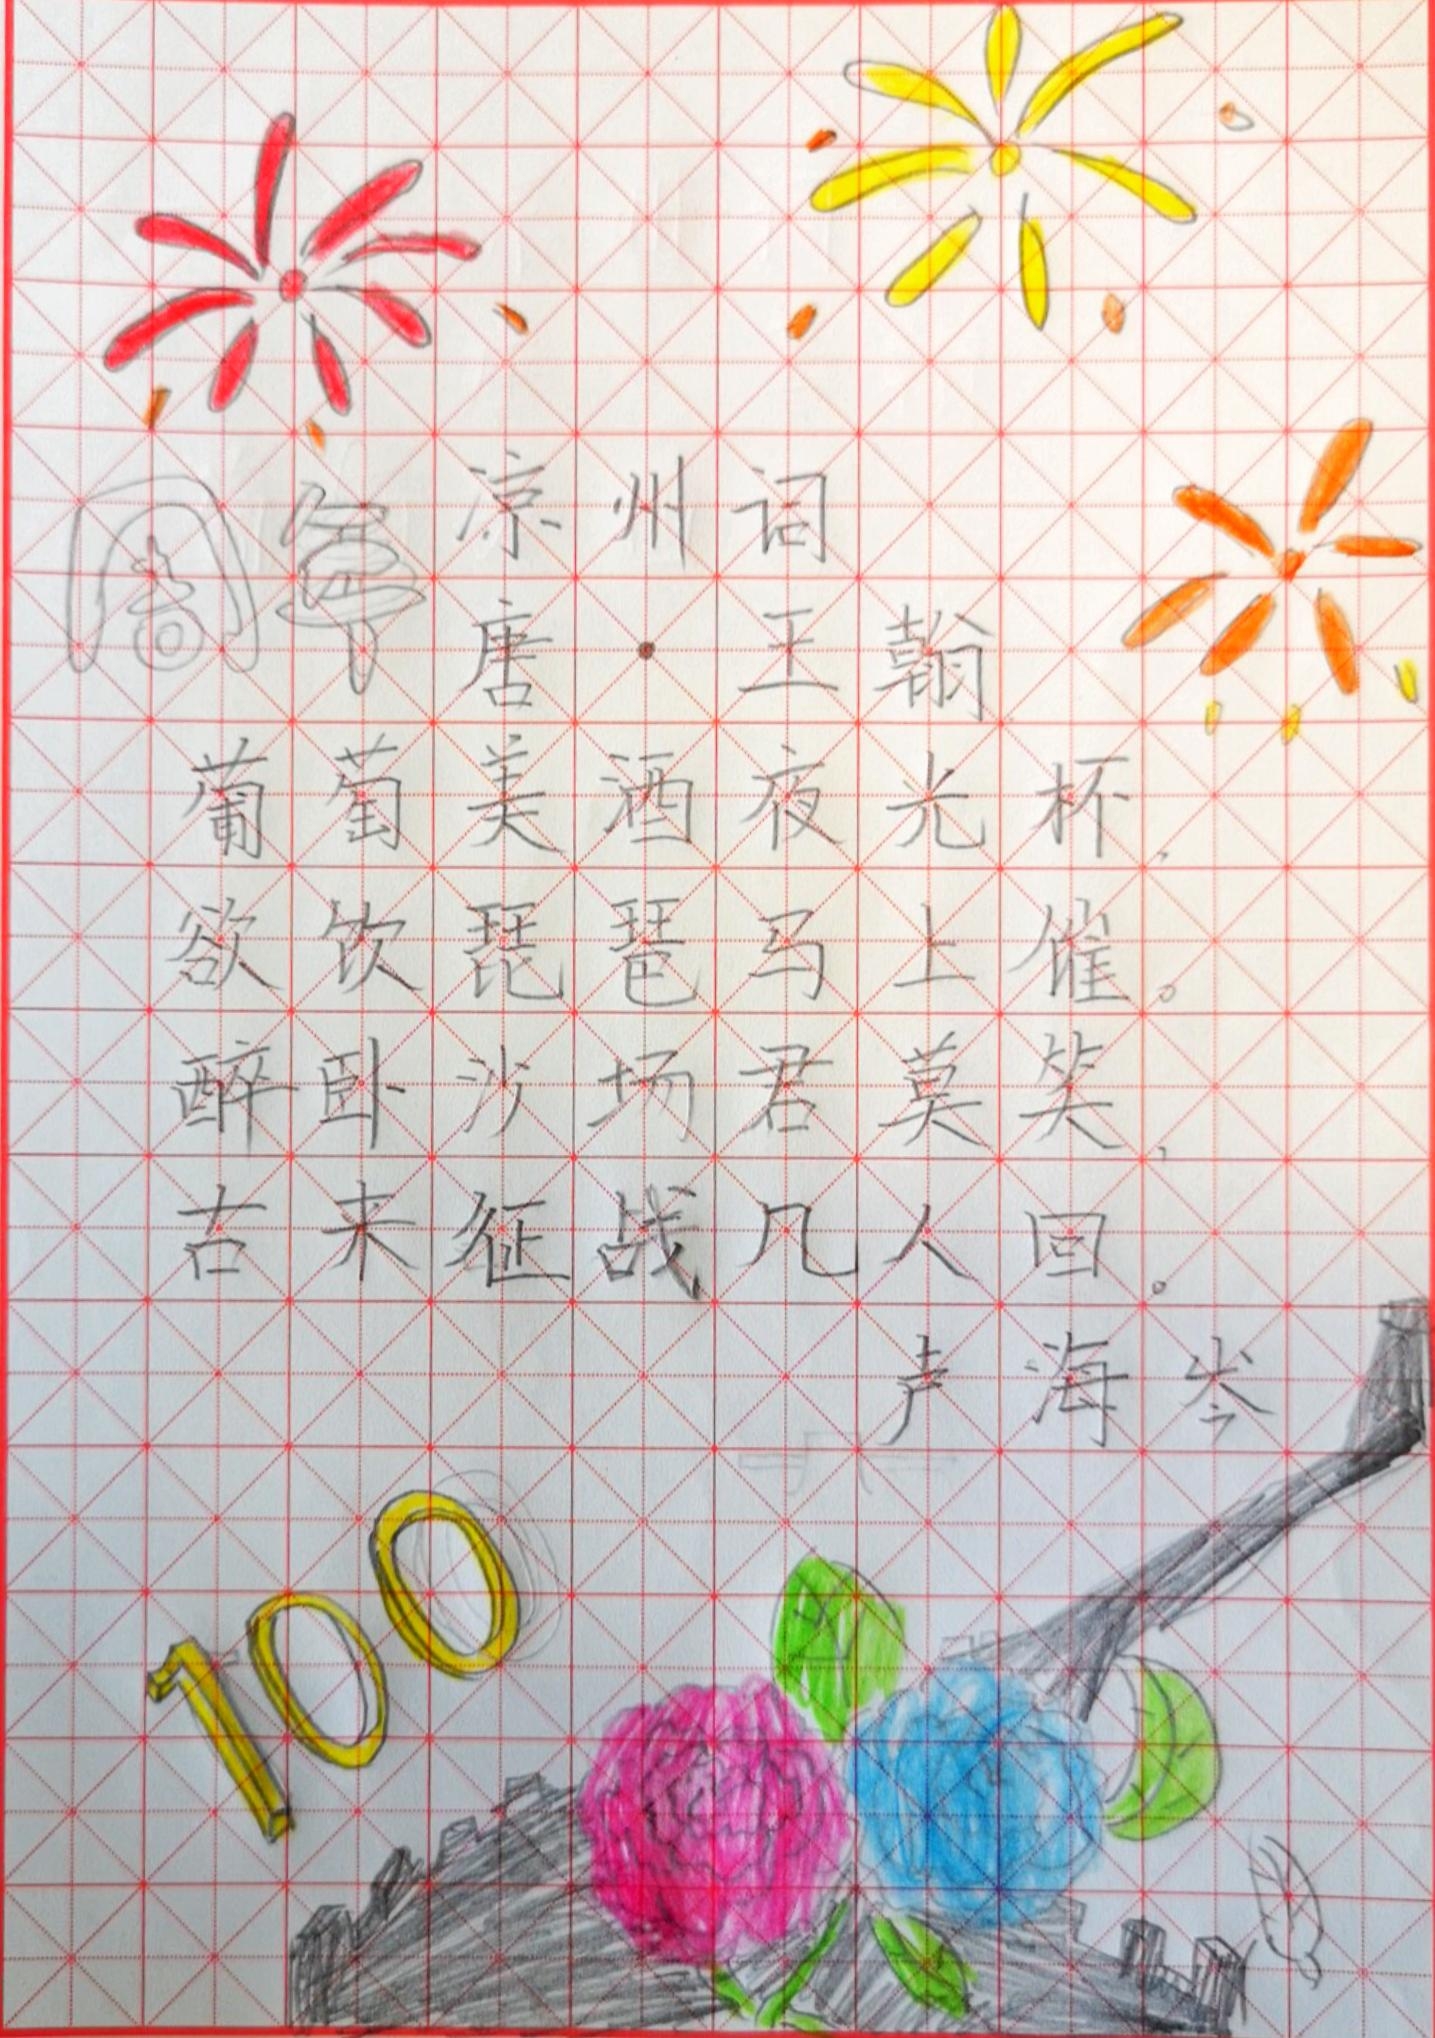 凉州词
周年
唐·王翰
葡萄美酒夜光杯,
欲饮琵琶马上催。
醉卧沙场君莫笑,
古来征战几人回。
声海岑
100